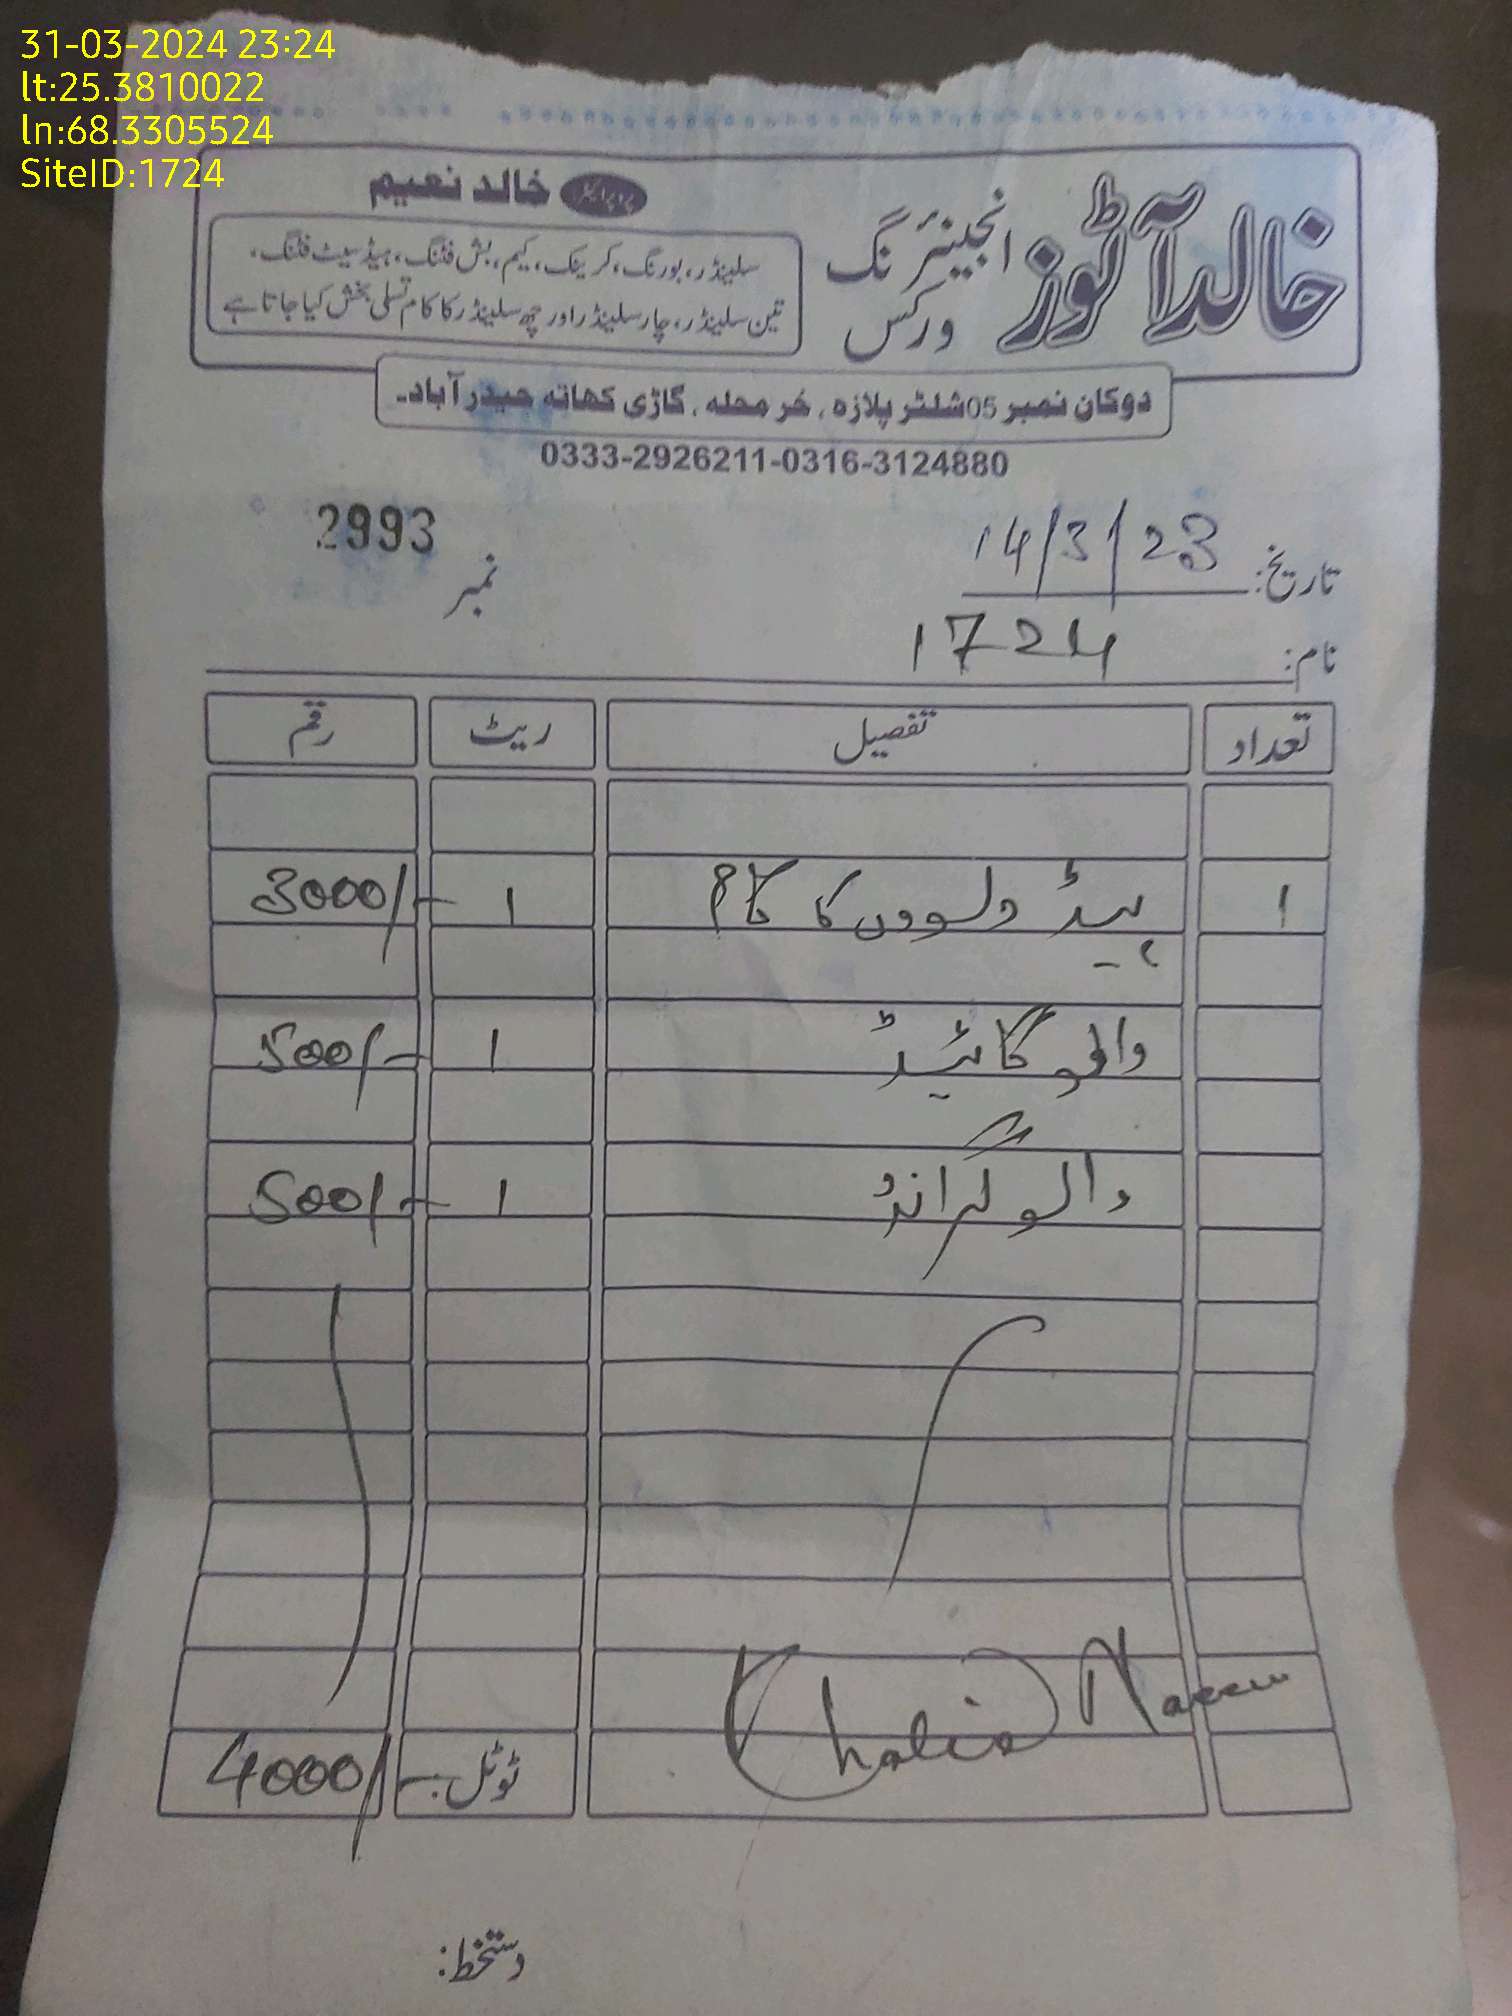 31-03-2024 23:24
lt:25.3810022
ln:68.3305524
SiteID:1724
خالد آٹوز انجینئرنگ ورکس
پروپرائیٹر خالد نعیم
سلینڈر، بورنگ، کرینک، کیم، بش فٹنگ، ہیڈ سیٹ فٹنگ،
تین سلینڈر، چار سلینڈر اور چھ سلینڈر کا کام تسلی بخش کیا جاتا ہے
دوکان نمبر 05 شلٹر پلازہ، خر محلہ، گاڑی کھاتہ حیدرآباد۔
0333-2926211-0316-3124880
تاریخ: 14/3/23 نمبر 2993
نام: 1724
تعداد تفصیل ریٹ رقم
1 ہیڈ ولووں کا کام 1 3000/-
والو گائیڈ 1 500/-
والو گرانڈ 1 500/-
Khalid Naeem
ٹوٹل 4000/-
دستخط: